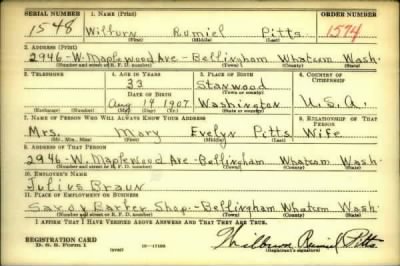 SERIAL NUMBER 1. NAME (Print) ORDER NUMBER
1548 Wilburn Rumiel Pitts 1574
(First) (Middle) (Last)
2. ADDRESS (Print)
2946-W. Maplewood Ave-Bellingham Whatcom Wash.
(Number and street or R. F. D. number) (Town) (County) (State)
3. TELEPHONE 4. AGE IN YEARS 5. PLACE OF BIRTH 6. COUNTRY OF CITIZENSHIP
33 Stanwood
DATE OF BIRTH (Town or county)
Aug 19 1907 Washington U.S.A.
(Exchange) (Number) (Mo.) (Day) (Yr.) (State or country)
7. NAME OF PERSON WHO WILL ALWAYS KNOW YOUR ADDRESS 8. RELATIONSHIP OF THAT PERSON
Mrs. Mary Evelyn Pitts Wife
(Mr., Mrs., Miss) (First) (Middle) (Last)
9. ADDRESS OF THAT PERSON
2946-W. Maplewood Ave-Bellingham Whatcom Wash.
(Number and street or R. F. D. number) (Town) (County) (State)
10. EMPLOYER'S NAME
Julius Braun
11. PLACE OF EMPLOYMENT OR BUSINESS
Saxon Barber Shop.-Bellingham Whatcom Wash.
(Number and street or R. F. D. number) (Town) (County) (State)
I AFFIRM THAT I HAVE VERIFIED ABOVE ANSWERS AND THAT THEY ARE TRUE.
REGISTRATION CARD
D. S. S. Form 1 (over) Wilburn Rumiel Pitts
(Registrant's signature)